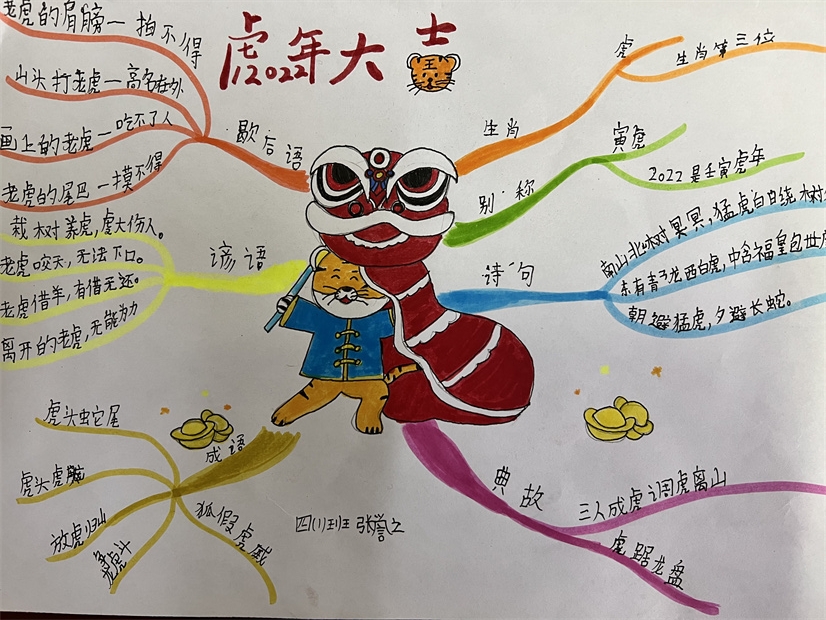 虎年大士
2022
歇后语
老虎的肩膀一拍不得
山头打老虎一高名在外
画上的老虎一吃不了人
老虎的尾巴一摸不得
谚语
栽树养虎，虎大伤人。
老虎咬天，无法下口。
老虎借羊，有借无还。
离开的老虎，无能为力
成语
虎头蛇尾
虎头虎脑
放虎归山
虎斗
狐假虎威
生肖
虎
生肖第三位
别称
寅虎
2022是壬寅虎年
诗句
南山北树冥冥，猛虎白日绕树
东有青龙西白虎，中含福皇包世
朝避猛虎，夕避长蛇。
典故
三人成虎调虎离山
虎踞龙盘
四(1)班 张誉之